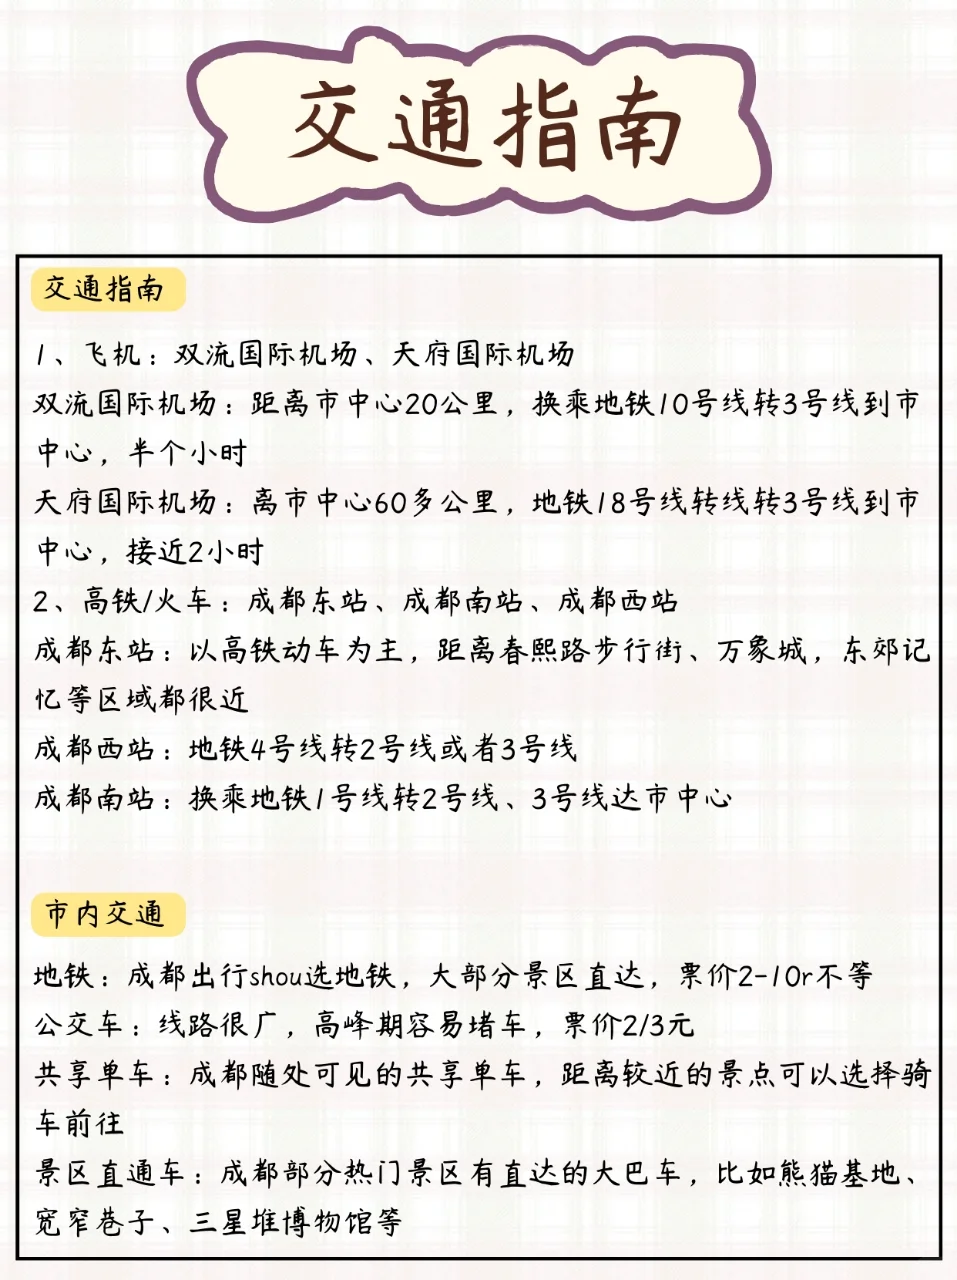 交通指南
交通指南
1、飞机：双流国际机场、天府国际机场
双流国际机场：距离市中心20公里，换乘地铁10号线转3号线到市
中心，半个小时
天府国际机场：离市中心60多公里，地铁18号线转线转3号线到市
中心，接近2小时
2、高铁/火车：成都东站、成都南站、成都西站
成都东站：以高铁动车为主，距离春熙路步行街、万象城，东郊记
忆等区域都很近
成都西站：地铁4号线转2号线或者3号线
成都南站：换乘地铁1号线转2号线、3号线达市中心
市内交通
地铁：成都出行shou选地铁，大部分景区直达，票价2-10r不等
公交车：线路很广，高峰期容易堵车，票价2/3元
共享单车：成都随处可见的共享单车，距离较近的景点可以选择骑
车前往
景区直通车：成都部分热门景区有直达的大巴车，比如熊猫基地、
宽窄巷子、三星堆博物馆等